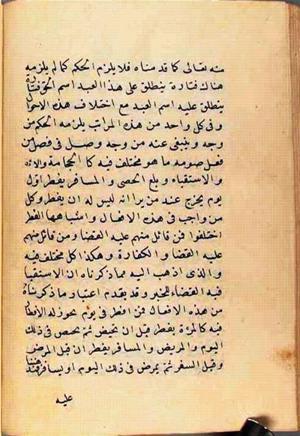 منه تعالى كما قدمناه فلا يلزم الحكم كما لم يلزمه
هناك فتارة ينطلق على هذا العبد اسم الحق وتارة
ينطلق عليه اسم العبد مع اختلاف هذه الاحوال
وفي كل واحد من هذه المراتب يلزمه الحكم من
وجه وينتفى عنه من وجه وصل في فصل من
فعل صومه ما هو مختلف فيه كالحجامة
والاستقاء وبلع الحصى والمسافر يفطر اول
يوم يخرج عند من يرا انه ليس له ان يفطر وكل
من واجب في هذه الافعال واشباهها الفطر
اختلفوا فمن قائل منهم عليه القضا ومن قائل منهم
عليه القضا والكفارة وهكذا كل مختلف فيه
والذي اذهب اليه مما ذكرناه ان الاستقيا
فيه القضا للخبر وقد يقدم اعتبار ما ذكرناه
من هذه الافعال من افطر في يوم يجوز له الافطار
فيه كالمرة يفطر قبل ان تحيض ثم تحيض في ذلك
اليوم والمريض والمسافر يفطر ان قبل المرض
وقبل السفر ثم يمرض في ذلك اليوم او يسافر
عليه